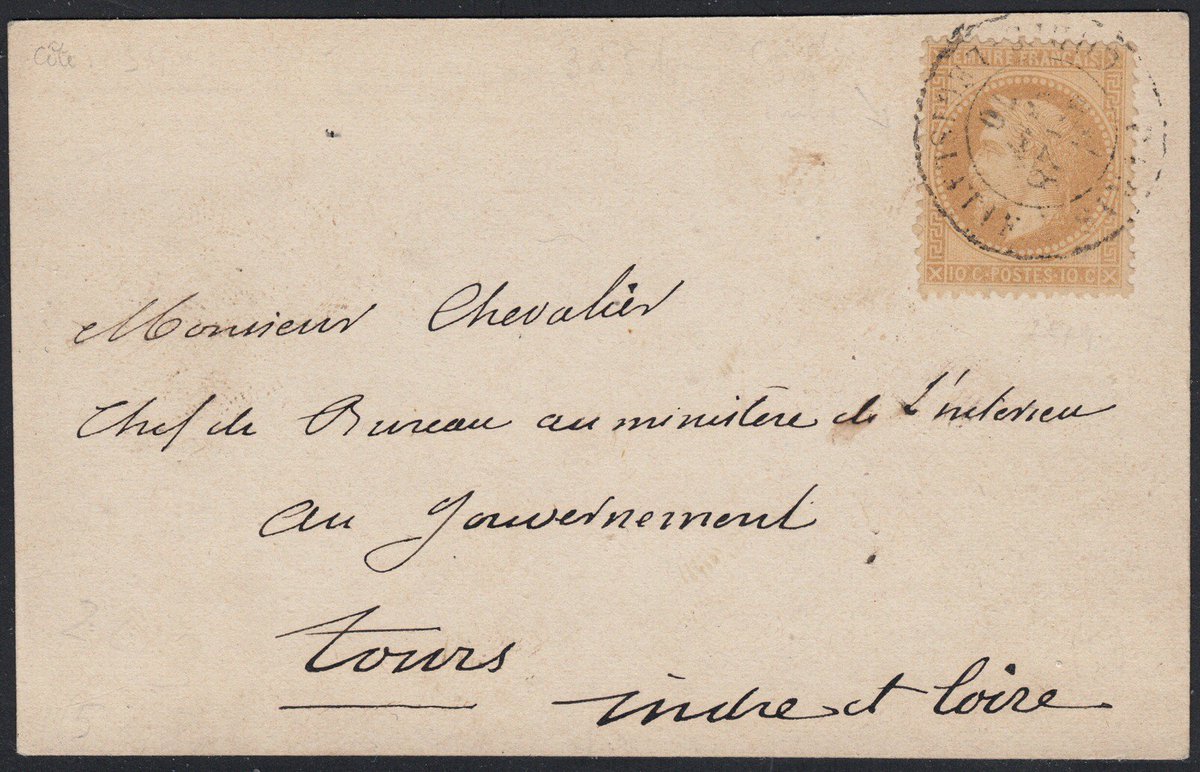 Côte
EMPIRE FRANÇAIS
10 C·POSTES·10 C
Monsieur Chevalier
Chef de Bureau au ministère de l'interieu
au gouvernement
tours
indre et loire